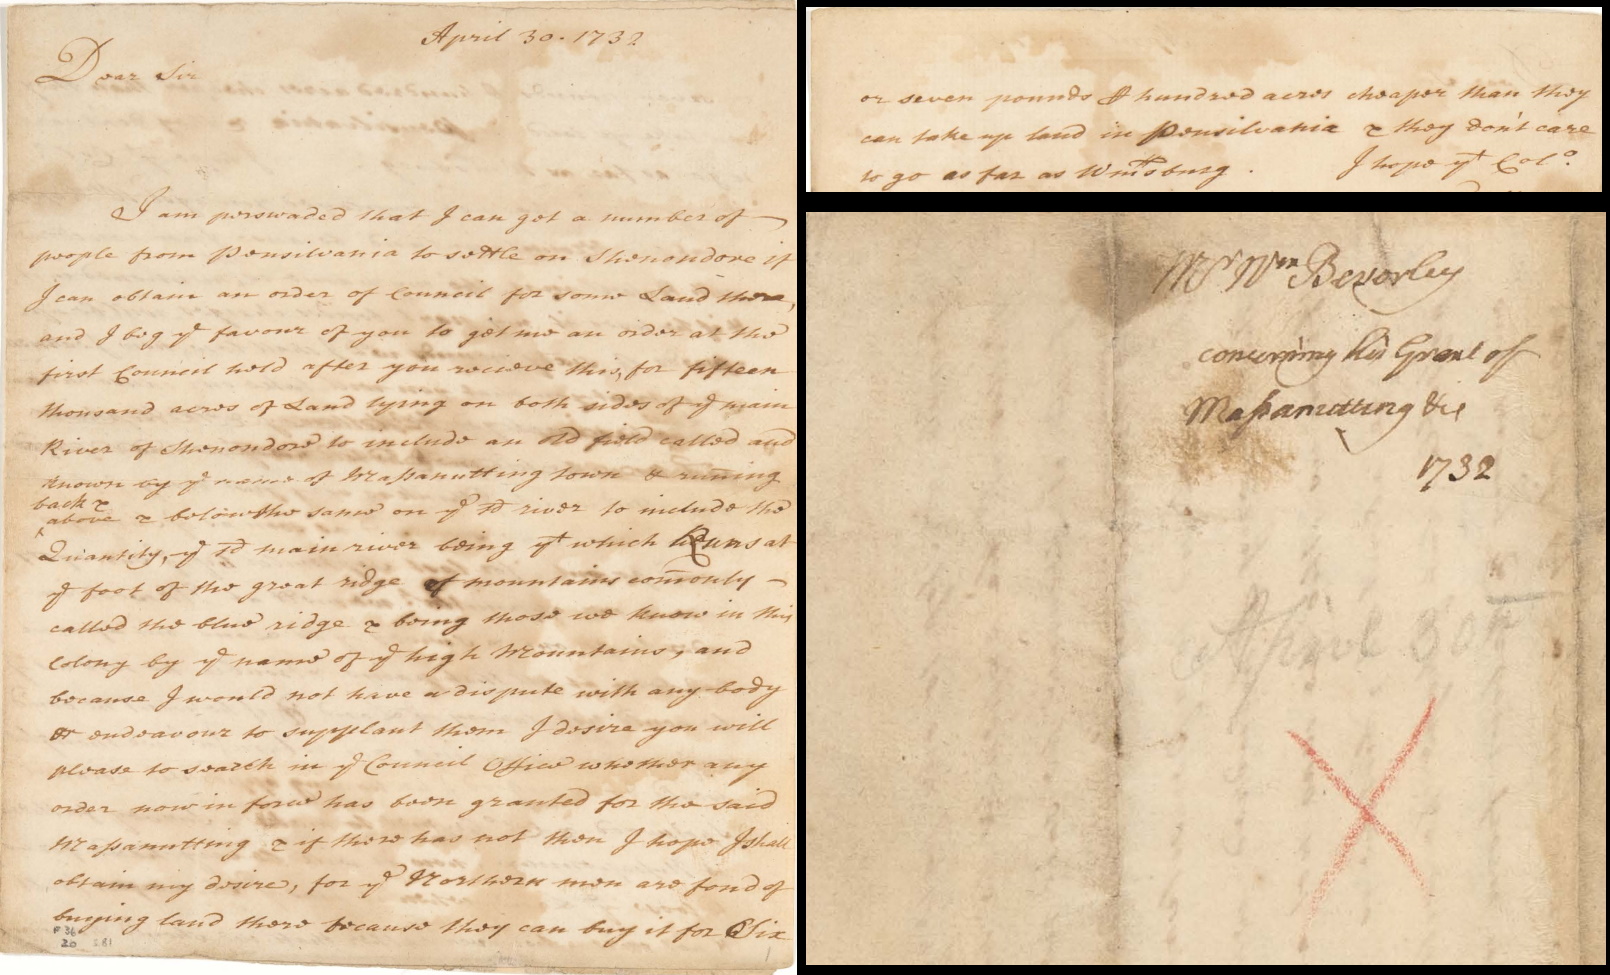 April 30. 1732
Dear Sir
I am perswaded that I can get a number of
people from Pensilvania to settle on Shenondore if
I can obtain an order of Council for some Land there,
and I beg yᵉ favour of you to get me an order at the
first Council held after you recieve this, for fifteen
thousand acres of Land lying on both sides of yᵉ main
River of Shenondore to include an old field called and
known by yᵉ name of Massanutting town & runing
back &
above & below the same on yᵉ sᵈ river to include the
Quantity, yᵉ sᵈ main river being yᵗ which Runs at
yᵉ foot of the great ridge of mountains comonly
called the blue ridge & being those we know in this
Colony by yᵉ name of yᵉ high Mountains, and
because I would not have a dispute with any body
or endeavour to supplant them I desire you will
please to search in yᵉ Council Office whether any
order now in force has been granted for the said
Massanutting & if there has not then I hope I shall
obtain my desire, for yᵉ Northern men are fond of
buying land there because they can buy it for Six
F 36
20 281
1
or seven pounds ⅌ hundred acres cheaper than they
can take up land in Pensilvania & they don't care
to go as far as Wmsburg. I hope yᵗ Colᵒ.
Mʳ Wᵐ Beverley
concerning his Grant of
Massanutting &c
1732
April 30th